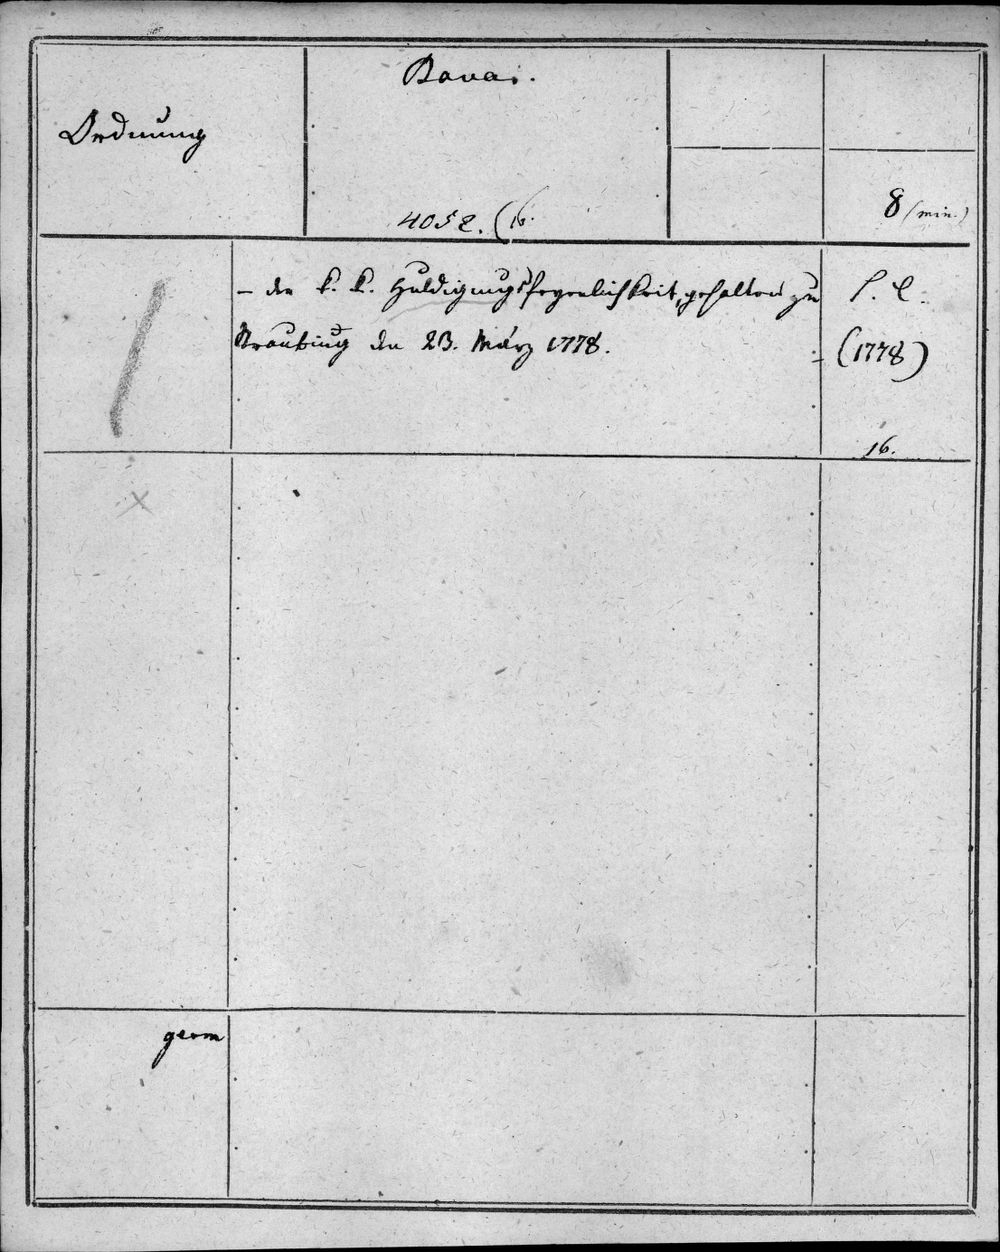 Bavar.
Ordnung
4052. (16.
8 (min.)
– der k. k. Huldigungsfeyerlichkeit, gehalten zu
Straubing den 23. März 1778.
s. l.
(1778)
16.
germ